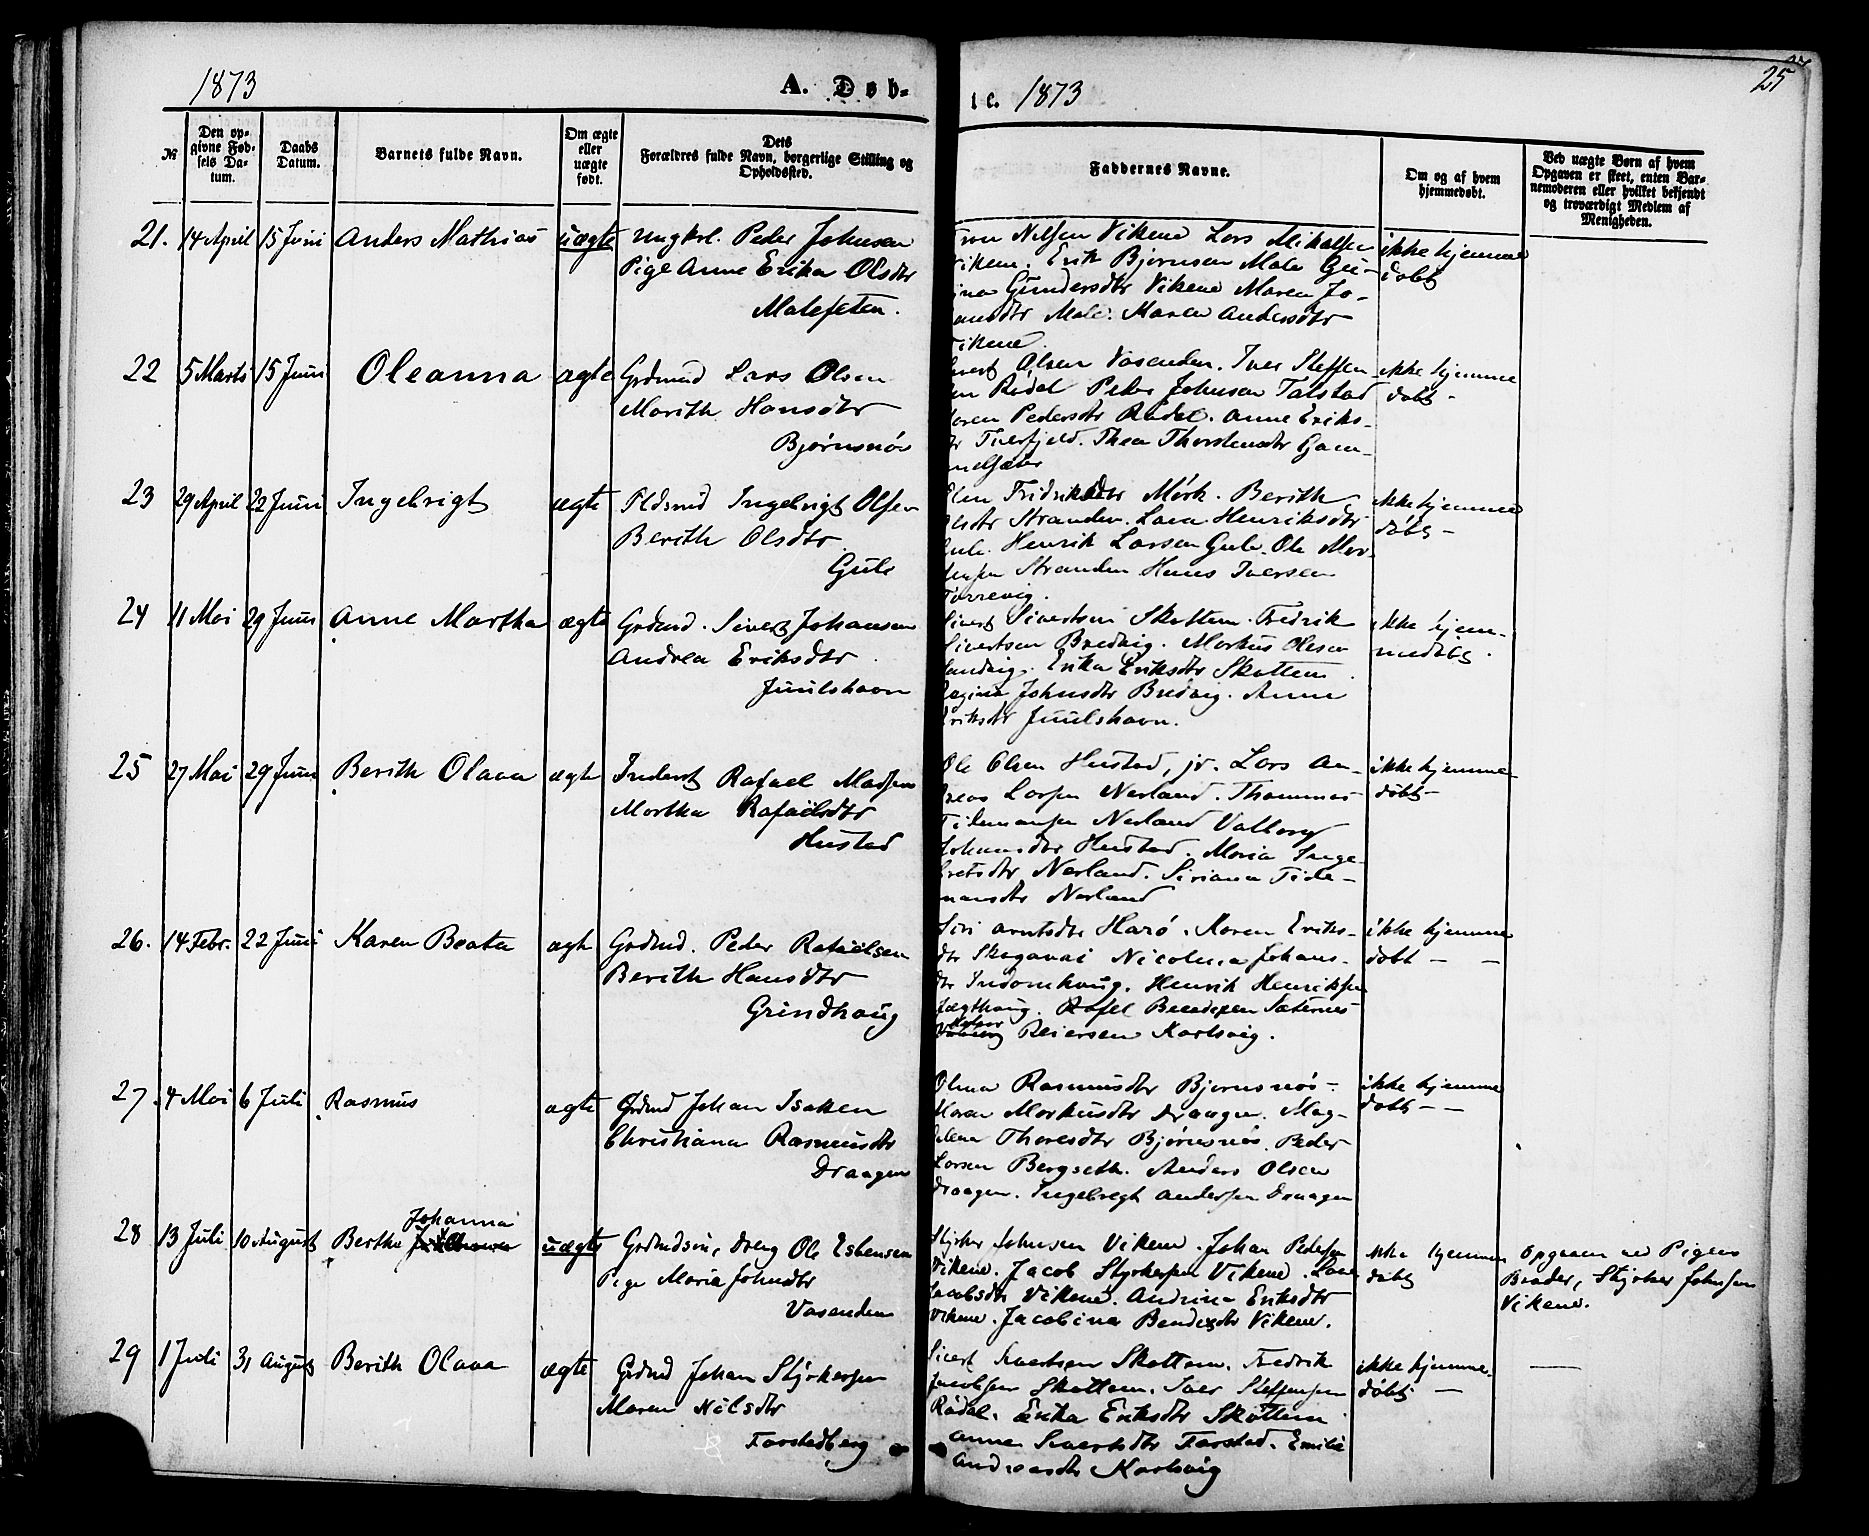 1873
A. Døb-
te. 1873
25
№
Den op-
givne Fød-
sels Da-
tum.
Daabs
Datum.
Barnets fulde Navn.
Om ægte
eller
uægte
født.
Dets
Forældres fulde Navn, borgerlige Stilling og
Opholdssted.
Faddernes Navne.
Om og af hvem
hjemmedøbt.
Ved uægte Børn af hvem
Opgaven er skeet, enten Bar-
nemoderen eller hvilket bekjendt
og troværdigt Medlem af
Menigheden.
21. 14 April 15 Juni Anders Mathias uægte Ungkrl. Peder Johnsen
Pige Anne Erika Olsdtr
Malefeten.
Nilsen Vikene Lars Mikalsen
Vikene. Erik Bjørnsen Male Gu-
Gundersdtr Vikene Maren Jo-
Male. Maren Andersdtr
Vikene.
ikke hjemme
døbt
22 5 Marts 15 Juni Oleanna ægte Grdmnd Lars Olsen
Marith Hansdtr
Bjørnsnös
Olsen Vasenden. Iver Steffen-
sen Rödal Peder Johnsen Talstad
Maren Pedersdtr Rödal. Anne Eriks-
dtr Tverfjeld. Thea Thorstensdtr Gam-
melsæter
ikke hjemme
døbt -
23 29 April 22 Juni Ingebrigt ægte Pldsmd Ingebrigt Olsen
Berith Olsdtr
Gule
Fridriksdtr Mörk. Berith
Olsdtr Stranden. Lava Henriksdtr
Gule. Henrik Larsen Gule. Ole Mor-
tensen Stranden Hans Iversen
Torrevig.
ikke hjemme
døbt -
24 11 Mai 29 Juni Anne Martha ægte Grdmd. Sivert Johansen
Andrea Eriksdtr
Juulshavn
Sivert Sivertsen Skottem. Fredrik
Sivertsen Bredvig. Markus Olsen
Sandvig. Erika Eriksdtr Skottem.
Regina Johnsdtr Bredvig. Anne
Eriksdtr Juulshavn.
ikke hjem-
medøbt.
25 27 Mai 29 Juni Berith Olava ægte Inderst Rafael Madsen
Martha Rafaelsdtr
Hustad
Ole Olsen Hustad, jr. Lars An-
dreas Larsen Nerland. Thommas
Tidemansen Nerland Valborg
Johannsdtr Hustad. Maria Inge-
bretsdtr Nerland. Siriana Tide-
mansdtr Nerland
ikke hjemme-
døbt -
26. 14 Febr. 22 Juni Karen Beata ægte Grdmd. Peder Rafaelsen
Berith Hansdtr
Grindhaug
Siri Arntsdtr Harö. Karen Eriks-
dtr Skaganæs Nicolina Johans-
dtr Indornhaug. Henrik Henriksen
Jægthaug. Rafel Bendixen Sæternes
Reiersen Karlsvig.
ikke hjemme
døbt - -
27. 4 Mai 6 Juli Rasmus ægte Grdmd Johan Isaksen
Christiana Rasmusdtr
Draagen
Olina Rasmusdtr Bjørnsnös -
Maren Markusdtr Draagen. Mag-
dalena Thoresdtr Bjørnsnös. Peder
Larsen Bergseth. Anders Olsen
Draagen. Ingebregt Andersen Draagen
ikke hjemme
døbt - -
28 13 Juli 10 August Berthe Johanna uægte Grdmdsøn, dreng Ole Esbensen
Pige Maria Johnsdtr
Vasenden
Styrker Johnsen Vikene. Johan Pedersen
Vikene. Jacob Styrkersen Vikene. Lava
Jacobsdtr Vikene. Andrina Eriksdtr
Vikene. Jacobina Bendixdtr Vikene.
ikke hjemme
døbt
Opgaven ved Pigens
Broder, Styrker Johnsen
Vikene.
29 1 Juli 31 August Berith Olava ægte Grdmd Johan Styrkersen
Maren Nilsdtr
Farstadberg
Sivert Sivertsen Skottem. Fredrik
Jacobsen Skottem. Iver Steffensen
Rödal. Erika Eriksdtr Skottem
Anne Sivertsdtr Farstad. Emilie
Andreasdtr Karlsvig
ikke hjemme-
døbt -